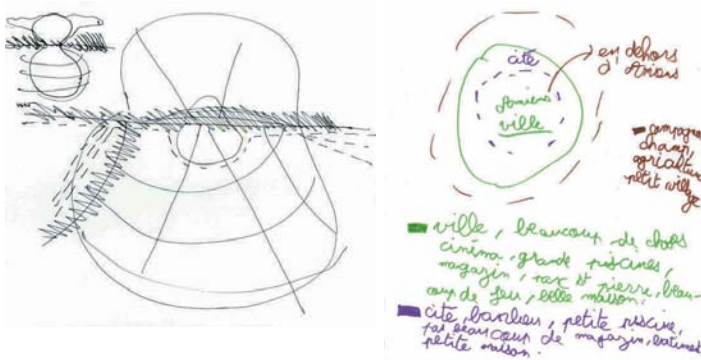 cité
en dehors
d'Amiens
Amiens
ville
campagne
champ
agricultu
petit village
ville, beaucoup de chops
cinéma, grande piscines,
magazin, parc st pierre, beau-
coup de feu, belle maison.
cité, banlieu, petite piscine,
pas beaucoup de magazin, batiment
petite maison.